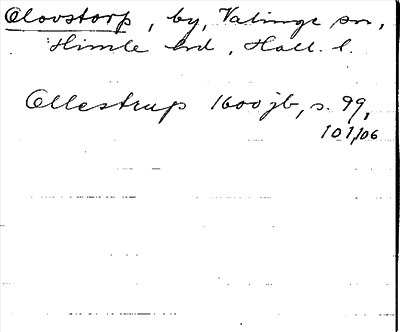 Olovstorp, by, Valinge sn,
Himle hd, Hall. l.
Ellestrup 1600 jb, s. 99,
101, 106